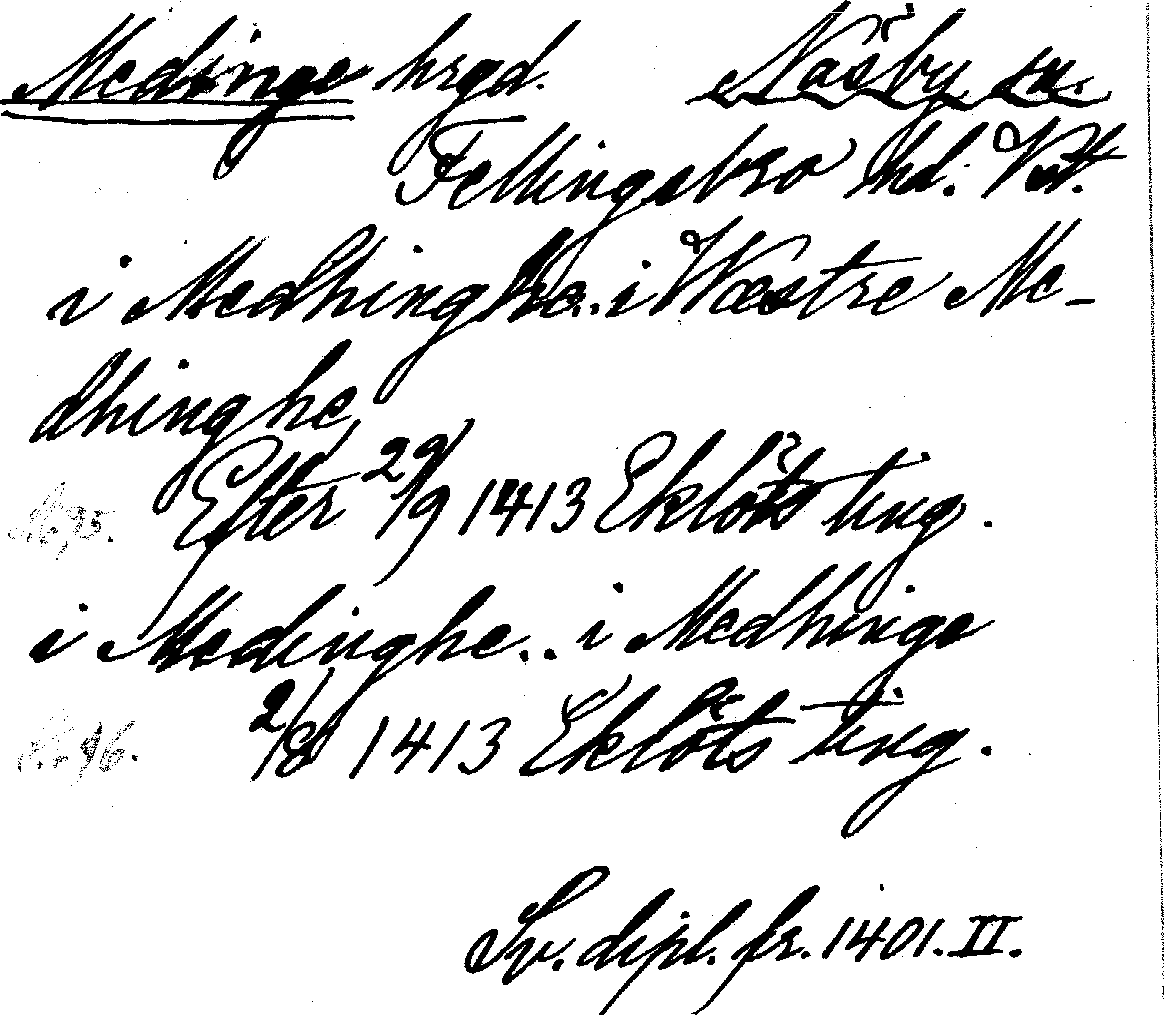 Medinge hrgd. Näsby sn.
Fellingsbro hd. Vstl.
i Medhinghe.. i Wæstre Me-
dhinghe
Efter 29/9 1413 Eklöts ting.
i Medinghe.. i Medhinge
2/8 1413 Eklöts ting.
Sv. dipl. fr. 1401. II.